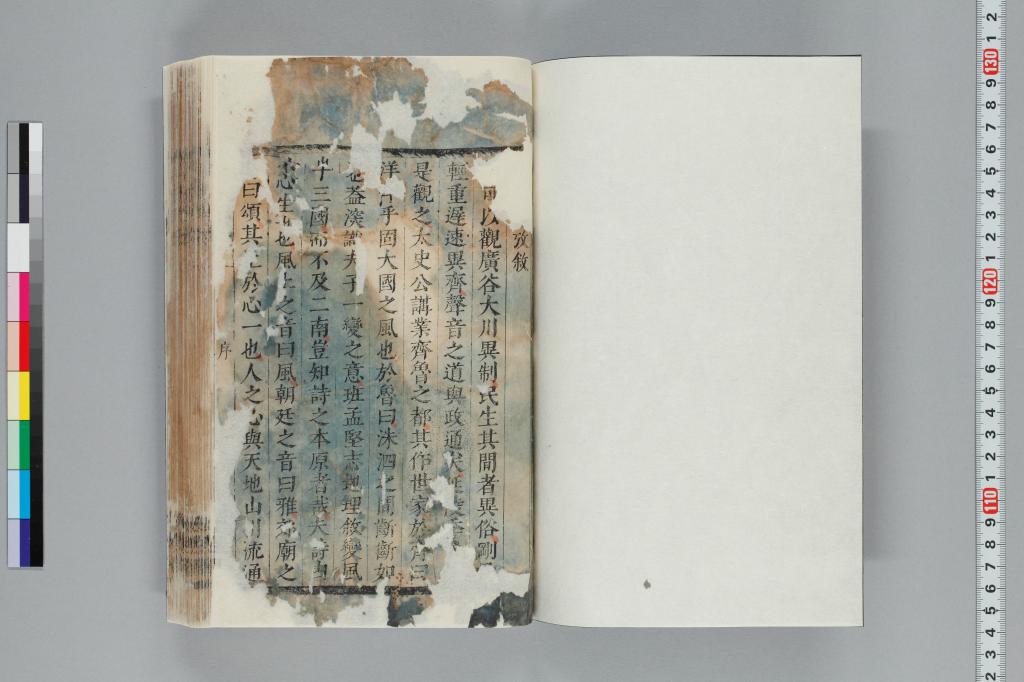 攷敘
以觀廣谷大川異制民生其間者異俗剛
輕重遲速異齊聲音之道與政通
是觀之太史公講業齊魯之都其作世家於齊曰
洋乎固大國之風也於魯曰洙泗之間斷斷如
也蓋深識夫子一變之意班孟堅志地理敘變風
十三國而不及二南豈知詩之本原者哉夫詩由
心生也風土之音曰風朝廷之音曰雅郊廟之
曰頌其於心一也人之心與天地山川流通
序